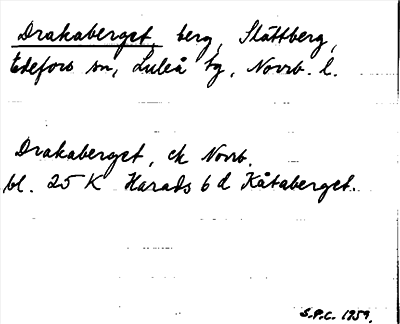 Drakaberget, berg, Slättberg,
Edefors sn, Luleå tg, Norrb. l.
Drakaberget, ek Norrb.
bl. 25 K Harads 6 d Kåtaberget.
S.P.C. 1959.